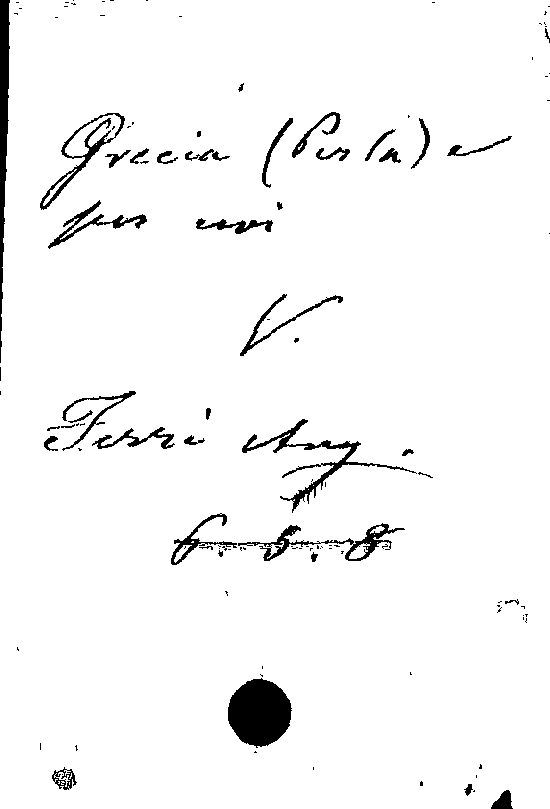 Grecia (Per la) e
per noi
V.
Ferri Ang.
6. 5. 8